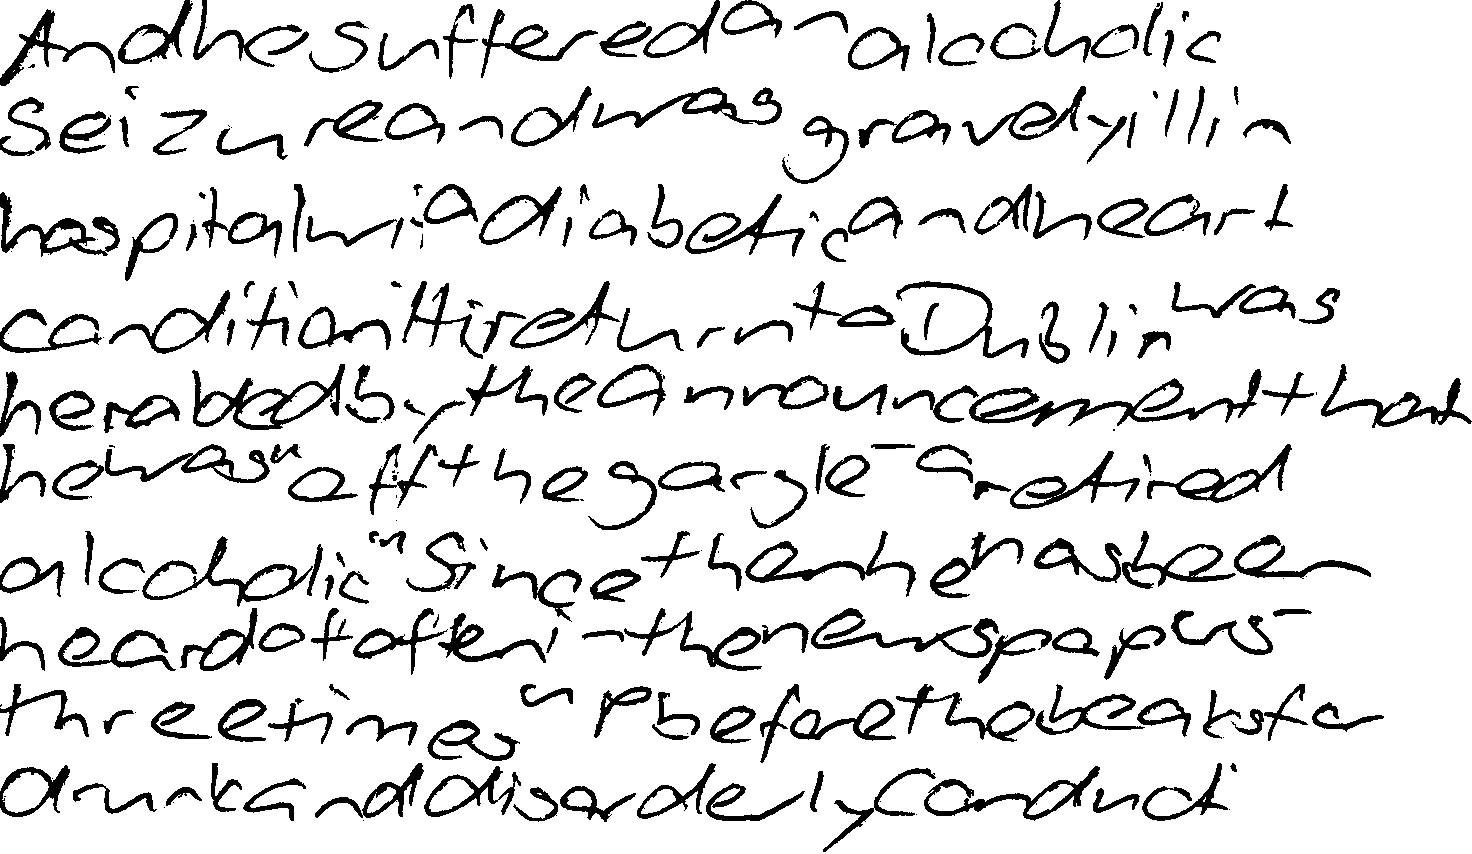 And he suffered an alcoholic
seizure and was gravely ill in
hospital wi a diabetic and heart
condition His return to Dublin was
heralded by the announcement that
he was "off the gargle - a retired
alcoholic" Since then he has been
heard of often in the newspapers -
three times up before the beaks for
drunk and disorderly conduct